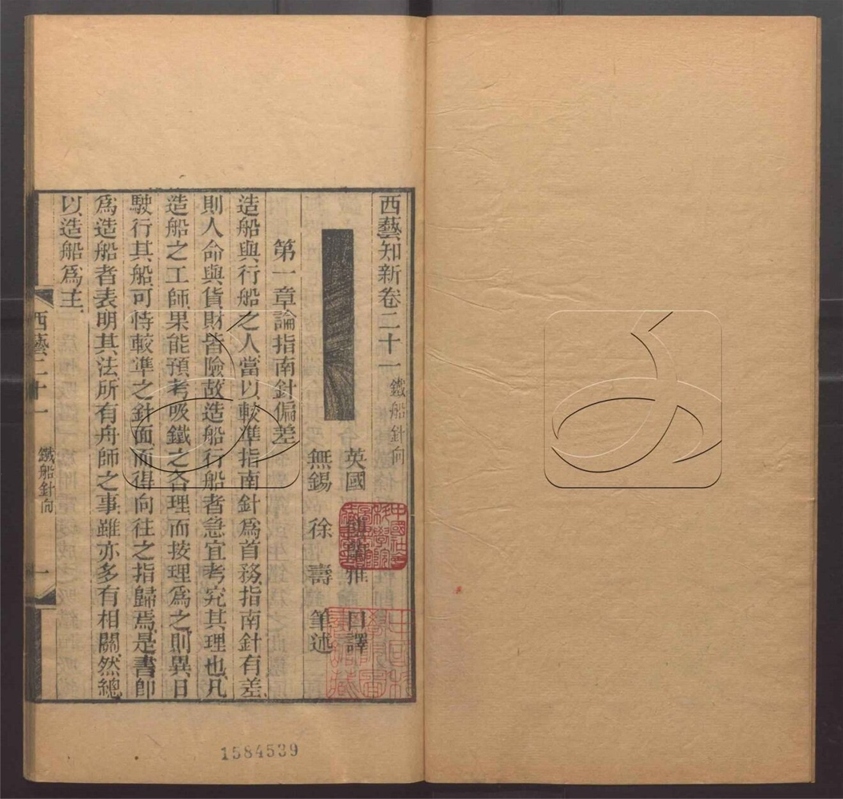 西藝知新卷二十一 鐵船針向
英國 傅蘭雅 口譯
無錫 徐壽 筆述
第一章論指南針偏差
造船與行船之人當以較準指南針爲首務指南針有差
則人命與貨財皆險故造船行船者急宜考究其理也凡
造船之工師果能預考吸鐵之各理而按理爲之則異日
駛行其船可恃較準之針面而得向往之指歸焉是書卽
爲造船者表明其法所有舟師之事雖亦多有相關然總
以造船爲主
西藝二十一 鐵船針向 一
1584539